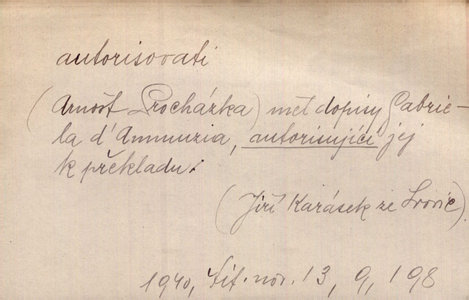 autorisovati
(Arnošt Procházka) měl dopisy Gabrie-
la d'Annunzia, autorisující jej
k překladu.
(Jiří Karásek ze Lvovic)
1940, Lit. nov. 13, 9, 198